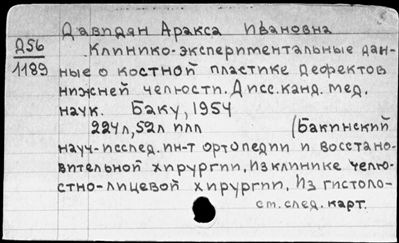 Давидян Аракса Ивановна
Д56
1189
Клинико-экспериментальные дан-
ные о костной пластике дефектов
нижней челюсти. Дисс. канд. мед.
наук. Баку, 1954
224л, 52л илл (Бакинский
науч-исслед. ин-т ортопедии и восстано-
вительной хирургии, Из клинике челю-
стно-лицевой хирургии, Из гистоло-
см. след. карт.